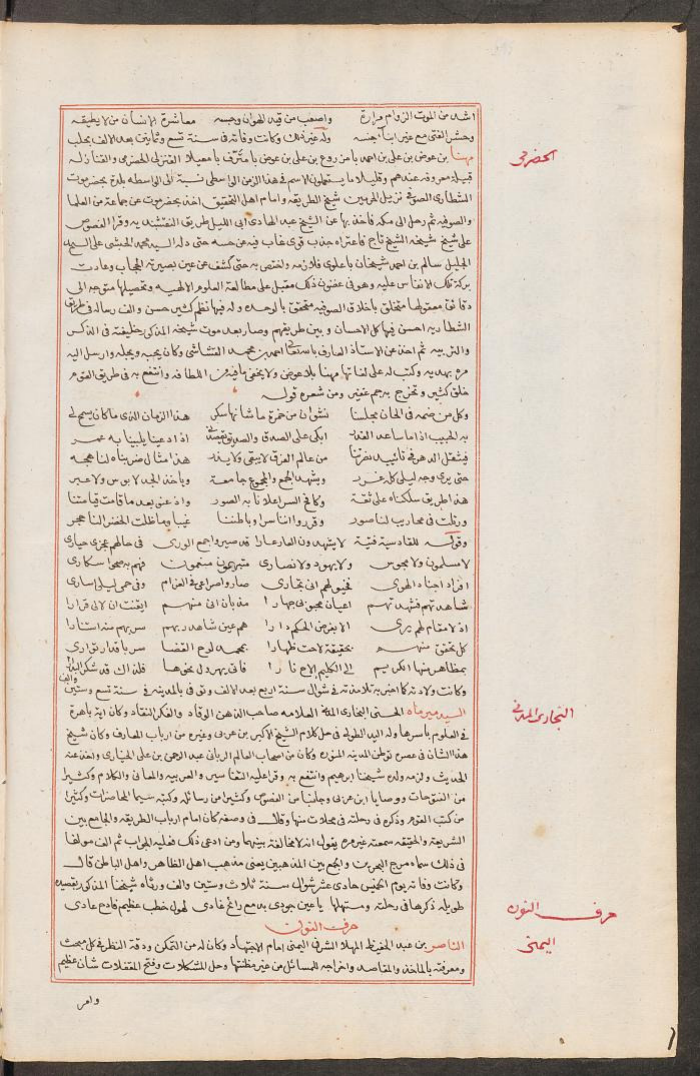 اشد من الموت الزوام مرارة واصعب من قيد الهوان وحبسه معاشرة الانسان من لا يطيقه
وحشر الفتى مع غير ابناء جنسه وله غير ذلك وكانت وفاته في سنة تسع وثمانين بعد الالف بحلب
مهنا بن عوض بن علي بن احمد بامزروع بن علي بن عوض بن القنزلي الحضرمي والقنازله
الحضرمى
قبيلة معروفه عندهم وقليلا ما يستعملون الاسم في هذا الزمن الواسطي نسبة الى الواسطه بلدة بحضرموت
الشطاري الصوفي نزيل الحرمين شيخ الطريقه وامام اهل التحقيق اخذ بحضرموت عن جماعة من العلما
والصوفيه ثم رحل الى مكه فاخذ بها عن الشيخ عبد الهادي ابي الليل طريق النقشبنديه وقرا الفصوص
على شيخ شيخه الشيخ تاج فاعتراه جذب قوي غاب فيه عن حسه حتى دله السيد محمد الحبشي على السيد
الجليل سالم بن احمد شيخان باعلوي فلازمه واختص به حتى كشف عن عين بصيرته الحجاب وعادت
بركة تلك الانفاس عليه وهو في غضون ذلك مقبل على مطالعة العلوم الالهيه وتحصيلها متوجه الى
دقائق معقولها متخلق باخلاق الصوفيه متحقق بالوحده وله فيها نظم كثير حسن والف رساله في طريق
الشطاريه احسن فيها كل الاحسان وبين طريقهم وصار بعد موت شيخه المذكور خليفته في الذكر
والتربيه ثم اخذ عن الاستاذ العارف بالله تعالى احمد بن محمد القشاشي وكان يحبه ويجله وارسل اليه
مره بهديه وكتب له على لفاتها مهنا بلا عوض ولا يخفى ما فيه من اللطافه وانتفع به في طريق القوم
خلق كثير وتخرج به جم غفير ومن شعره قوله
وكل من ضمه في الحان مجلسنا نشوان من خمرة ما شانها سكر هذا الزمان الذي ما كان يسمح لي
به الحبيب اذا ما ساعد القدر ابكي على الصدق والصديق اذا دعينا يلبينا به عمر
من عالم الفرق لا يبقي ولا يذر هذا مثال ضربناه لنا
حتى يرى وجه ليلى كل ويشهد الجمع والمجموع جامعة وياخذ الحد لا بوس ولا غير
هذا طريق سلكناه على ثقة السر اعلانا به الصور واذعنى بعد ما قامت قيامتنا
ورتلت في محاريب لنا صور وقرروا اننا سرا وباطننا غيبا وما ظلت الخضر لنا
وقوله للقادسية فتية لا يشهدون العار عارا قد سيروا جمع الورى في حالهم عجزى حيارى
لا مسلمون ولا مجوس ولا يهود ولا نصارى فهم به صحوا سكارى
افراد اجناد الهوى صاروا صرعى في الغرام وفي حمى ليلى اسارى
شاهدتهم فشهدتهم اعيان محبوبي جهارا مذ بان اني منهم ايقنت ان لا لي قرارا
اذ لا مقام لهم يرى دارا هم عين شاهد ربهم سر بهم منه استنارا
كل تحقق منهم بحقيقة لاحت ظهارا سر باقدار توارى
بمظاهر منها الكريم الى الكليم نارا فاتى يهرول نحوها فلذاك قد شكر
وكانت ولادته كما اخبر به تلامذته في شوال سنة اربع بعد الالف وتوفي بالمدينه في سنة تسع وستين والف
السيد مير ماه الحسني البخاري المدني العلامه صاحب الذهن الوقاد والفكر النقاد وكان اية باهرة
البخارى المدنى
في العلوم باسرها وله اليد الطولى في حل كلام الشيخ الاكبر بن عربي وغيره من ارباب المعارف وكان شيخ
هذا الشان في عصره توطن المدينه المنوره وكان من اصحاب العالم الرباني عبد الرحمن بن علي الخياري واخذ عنه
الحديث ولزمه ولده شيخنا ابرهيم وانتفع به وقرا عليه التفاسير والعربيه والمعاني والكلام وكثيرا
من الفتوحات ووصايا ابن عربي وجلبنا من الفصوص وكثيرا من رسائله وكتبه سيما المحاضرات وكثيرا
من كتب القوم وذكره في رحلته في محلات منها وقال في وصفه كان امام ارباب الطريقه والجامع بين
الشريعة والحقيقه سمعته غير مره يقول انه لا مخالفة بينهما ومن ادعى ذلك فعليه الجواب ثم الف مولفا
في ذلك سماه مرج البحرين والجمع بين المذهبين يعني مذهب اهل الظاهر واهل الباطن قال
وكانت وفاته يوم الخميس حادي عشر شوال سنة ثلاث وستين والف ورثاه شيخنا المذكور بقصيده
طويله ذكرها في رحلته ومستهلها يا عين جودي بدمع رائح غادي لهول خطب عظيم فادح عادي
حرف النون
حرف النون
الناصر بن عبد الحفيظ المهلا الشرفي اليمني امام الاجتهاد وكان له من التمكن ودقة النظر في كل مبحث
اليمنى
ومعرفته بالماخذ والمقاصد واخراجه للمسائل من غير مظنتها وحل المشكلات وفتح المقفلات شان عظيم
وامر